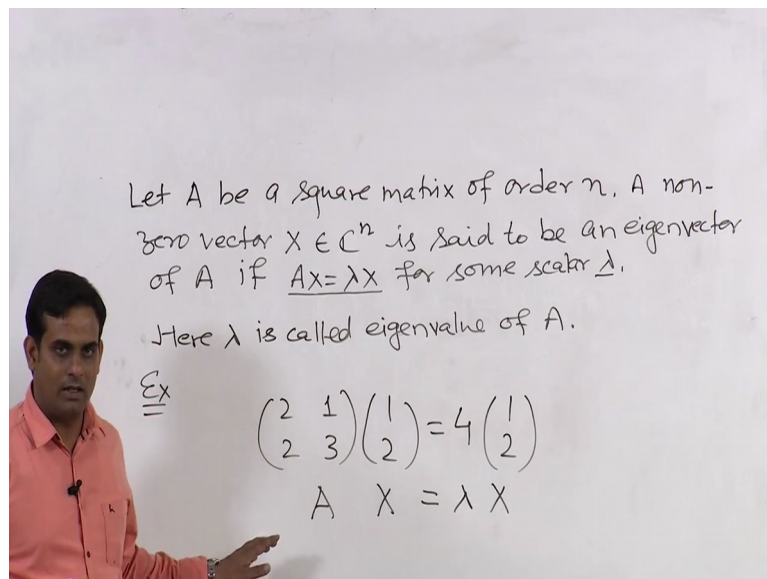 Let A be a square matrix of order n. A non-
zero vector X ∈ ℂⁿ is said to be an eigenvector
of A if AX=λX for some scalar λ.
Here λ is called eigenvalue of A.
Ex
(2 1) (1) = 4 (1)
(2 3) (2) (2)
A X = λ X